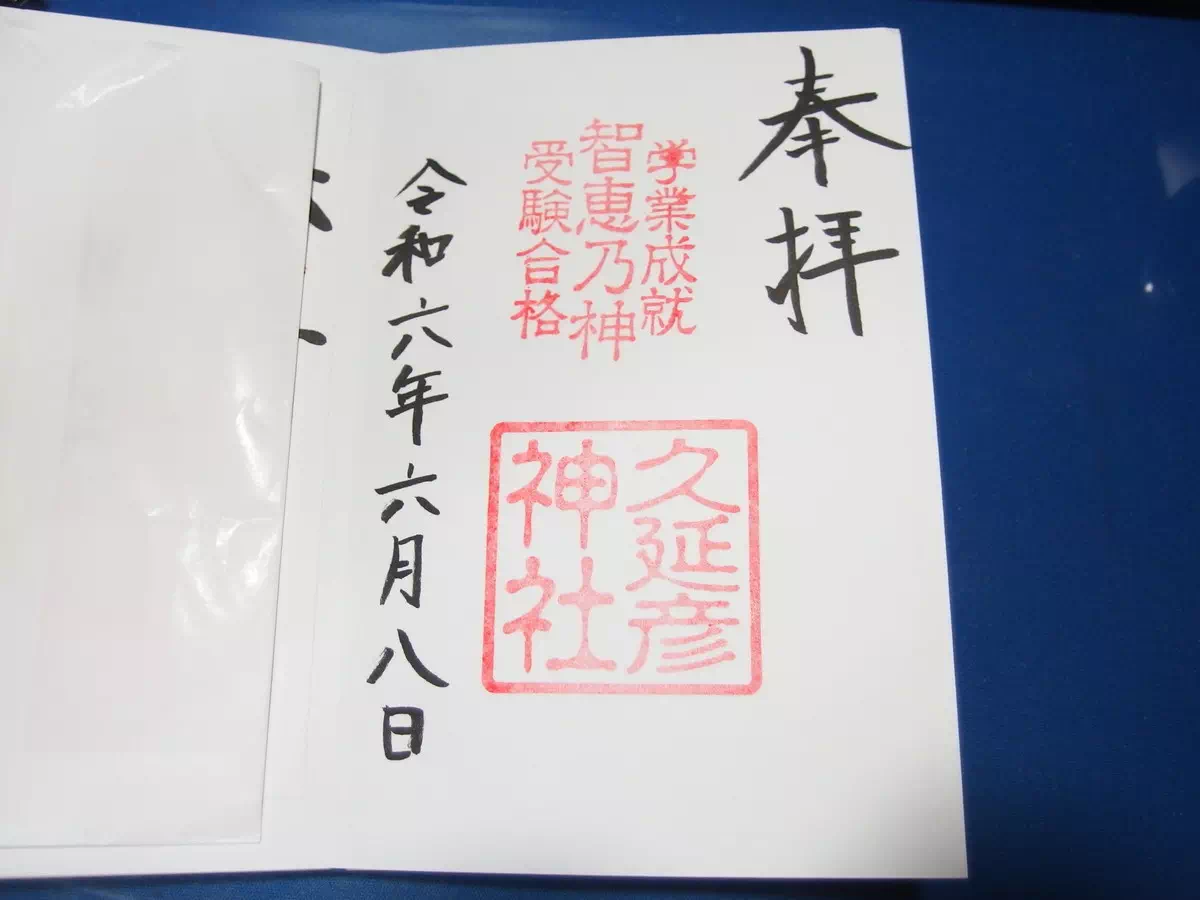 奉拝
学業成就
智恵乃神
受験合格
久延彦
神社
令和六年六月八日